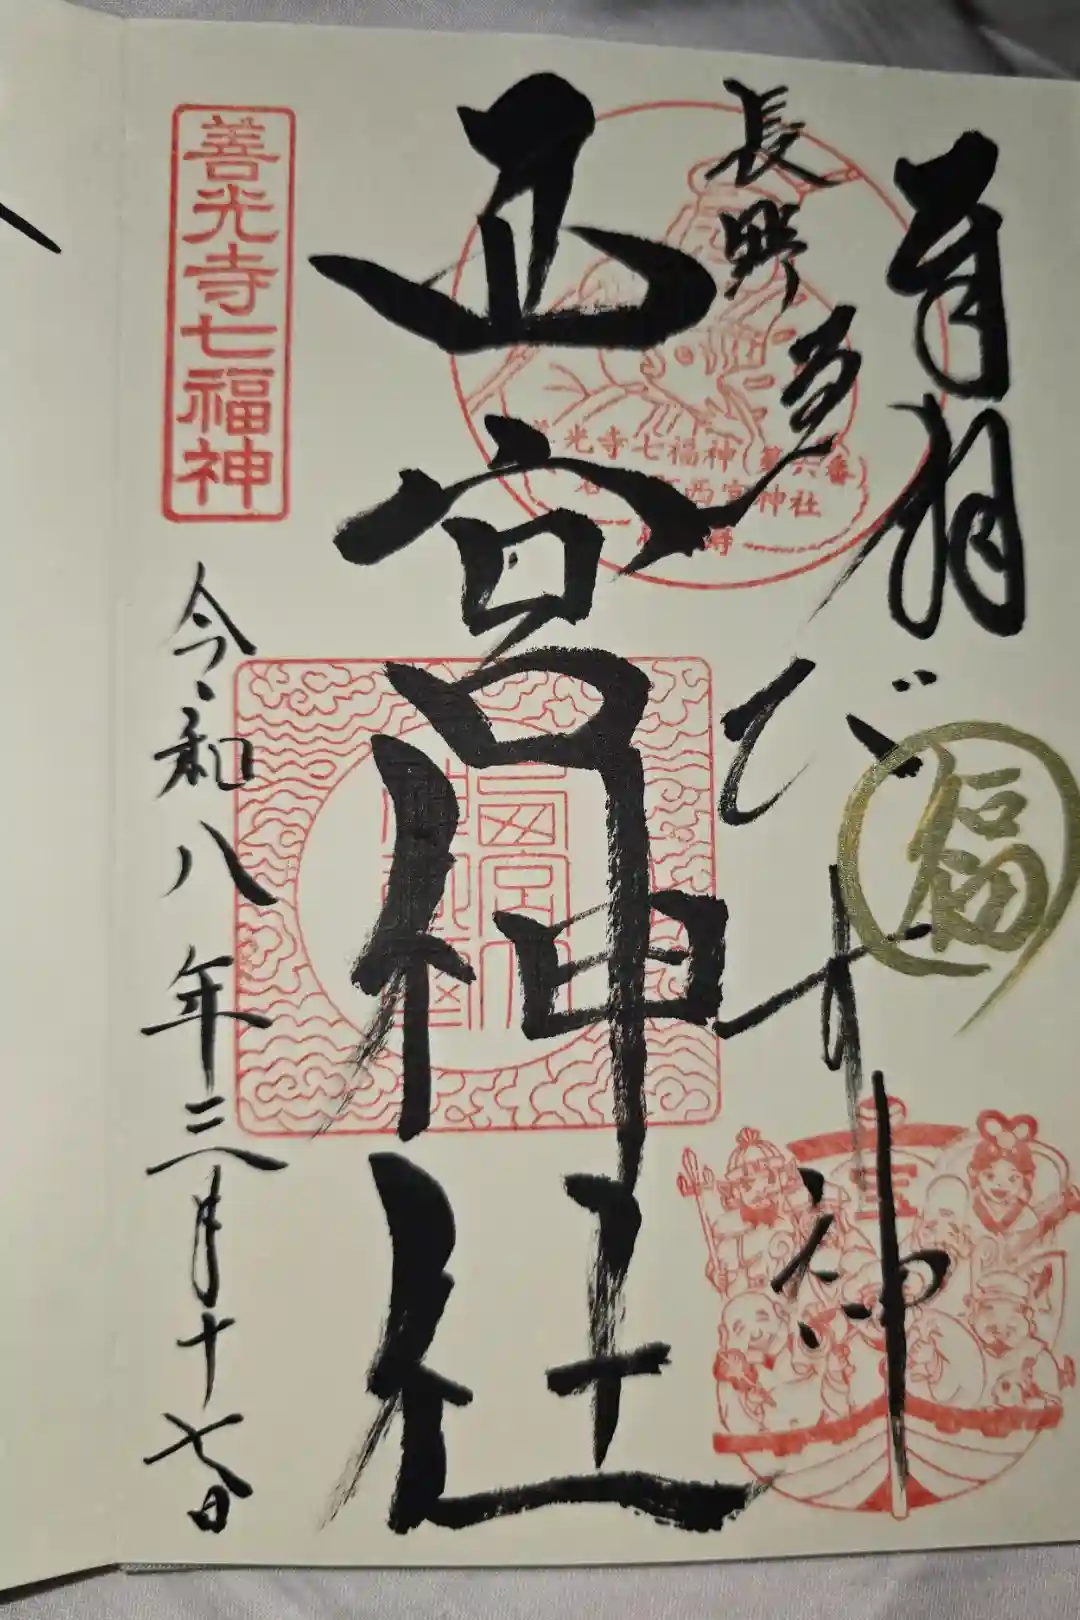 奉拝
長野ゑびす神
西宮神社
令和八年三月十七日
善光寺七福神
光寺七福神(第六番)
西宮神社
福
宝